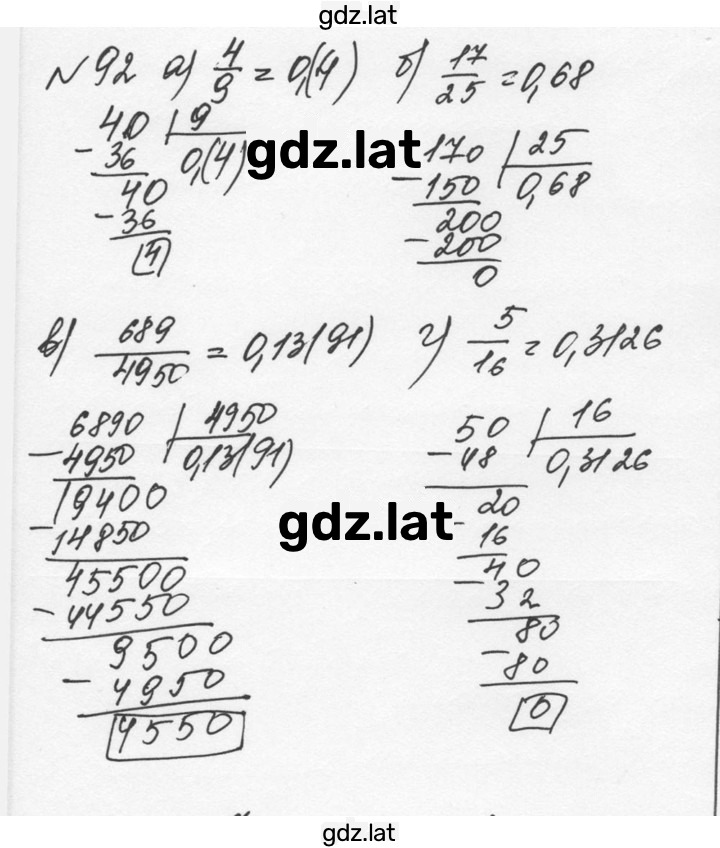 gdz.lat
№92 а) 4/9 = 0,(4) б) 17/25 = 0,68
40 | 9
- 36 0,(4)
40
- 36
4
gdz.lat
170 | 25
- 150 0,68
200
- 200
0
в) 689/4950 = 0,13(91) г) 5/16 = 0,3126
6890 | 4950
- 4950 0,13(91)
19400
- 14850
45500
- 44550
9500
- 4950
4550
50 | 16
- 48 0,3126
20
- 16
40
- 32
80
- 80
0
gdz.lat
gdz.lat